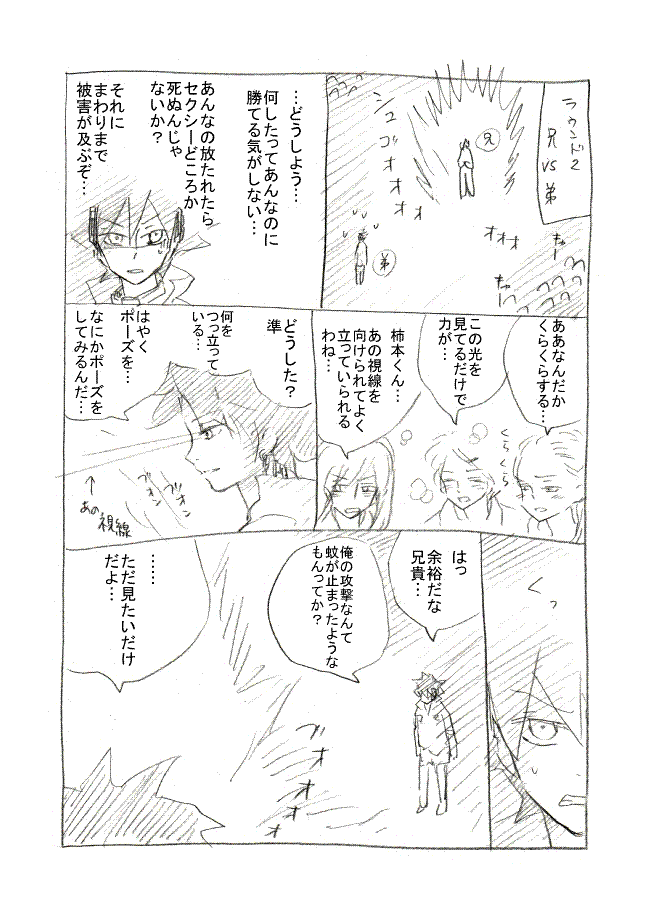 ラウンド2
兄 VS 弟
兄
シュ
ゴォオオオ
オオオ
オオオ
弟
…どうしよう…
何したってあんなのに
勝てる気がしない…
あんなの放たれたら
セクシーどころか
死ぬんじゃ
ないか？
それに
まわりまで
被害が及ぶぞ…
ああなんだか
くらくらする…
この光を
見てるだけで
力が…
くらくら
柿本くん…
あの視線を
向けられてよく
立っていられる
わね…
どうした？
準
何を
つっ立って
いる…
はやく
ポーズを…
なにかポーズを
してみるんだ…
ブオン
ブオン
↑
あの視線
くっ
はっ
余裕だな
兄貴…
俺の攻撃なんて
蚊が止まったような
もんってか？
ブオオオオ
……
ただ見たいだけ
だよ…